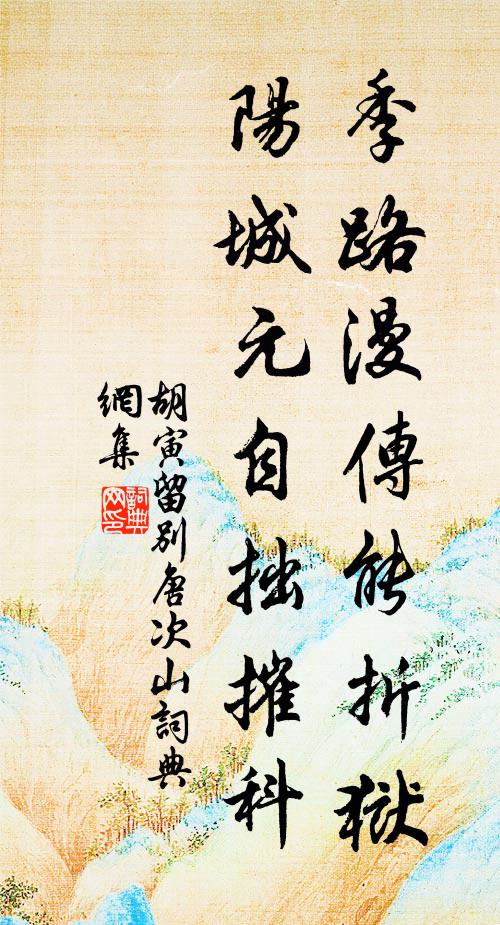 季路漫傳能折獄
陽城元自拙摧科
胡寅留別唐次山詞典
網集
詞典
网印